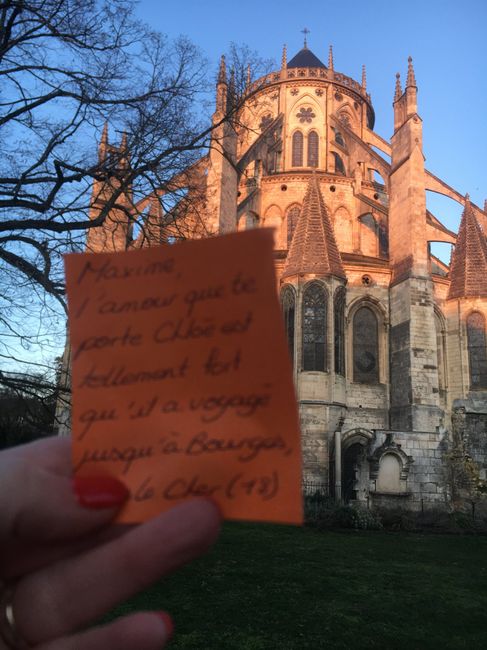 Maxime,
l'amour que te
porte Chloé est
tellement fort
qu'il a voyagé
jusqu'à Bourges,
le Cher (18)